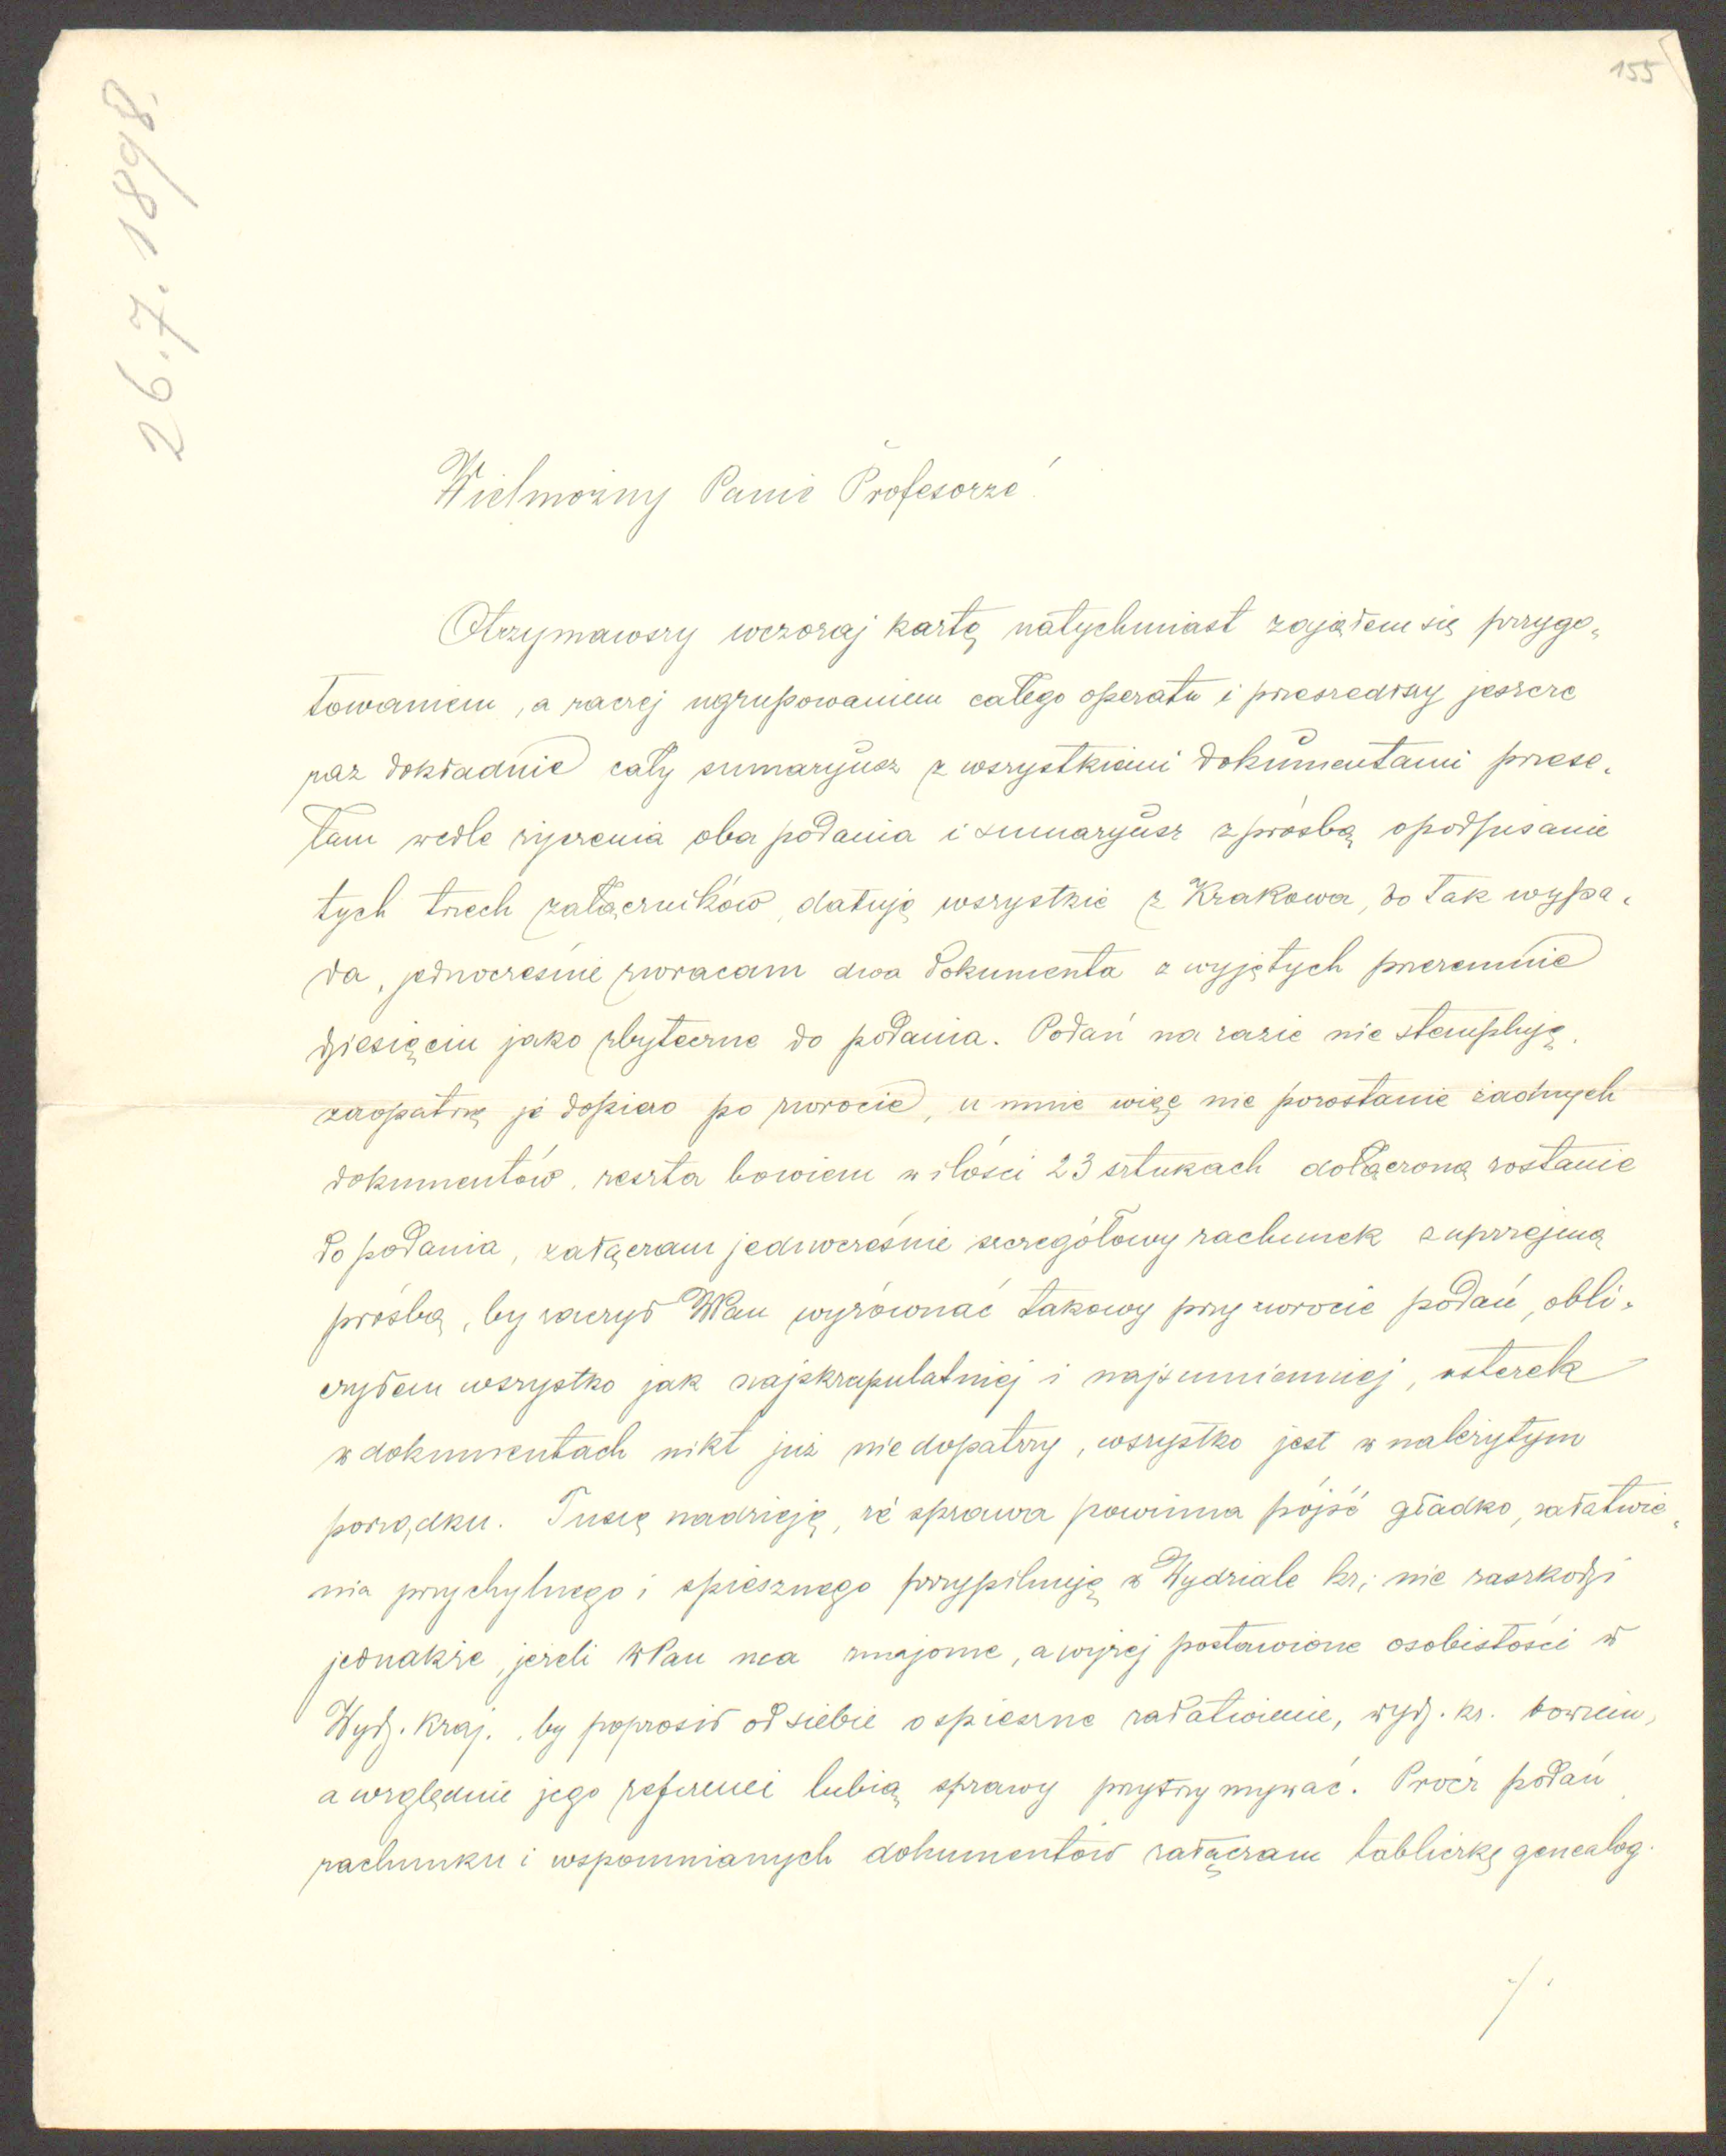 155
26.7.1898.
Wielmożny Panie Profesorze!
Otrzymawszy wczoraj kartę natychmiast zająłem się przygo„
towaniem, a raczej ugrupowaniem całego operatu i przeszedłszy jeszcze
raz dokładnie cały sumaryusz z wszystkiemi dokumentami przese„
łam wedle życzenia oba podania i sumaryusz z prośbą o podpisanie
tych trzech załączników, datuję wszystkie z Krakowa, bo tak wypa„
da, jednocześnie zwracam dwa dokumenta z wyjętych przezemnie
dziesięciu jako zbyteczne do podania. Podań na razie nie stempluję,
zaopatrzę je dopiero po zwrocie, u mnie więc nie pozostanie żadnych
dokumentów, reszta bowiem w ilości 23 sztukach dołączoną zostanie
do podania, załączam jednocześnie szczegółowy rachunek z uprzejmą
prośbą, by raczył WPan wyrównać takowy przy zwrocie podań, obli„
czyłem wszystko jak najskrapulatniej i najsumienniej, usterek
w dokumentach nikt już nie dopatrzy, wszystko jest w należytym
porządku. Tuszę nadzieję, że sprawa powinna pójść gładko, załatwie„
nia przychylnego i spiesznego przypilnuję w Wydziale kr; nie zaszkodzi
jednakże, jeżeli WPan ma znajome, a wyżej postawione osobistości w
Wydz. Kraj., by poprosił od siebie o spieszne załatwienie, wydz. kr. bowiem,
a względnie jego referenci lubią sprawy przytrzymywać. Prócz podań,
rachunku i wspomnianych dokumentów załączam tabliczkę genealog.
/.